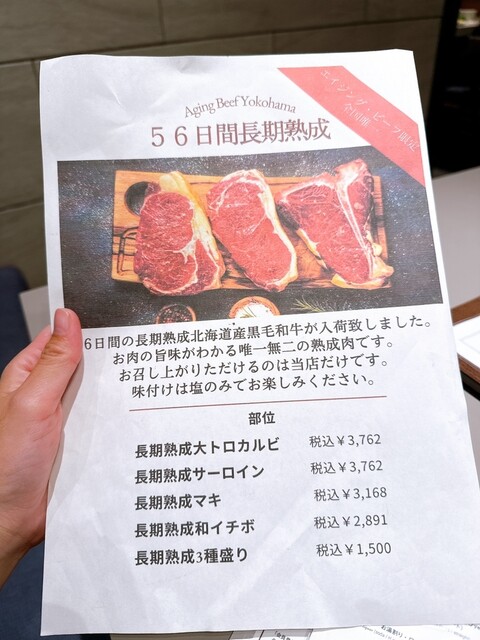 Aging Beef Yokohama
56日間長期熟成
エイジング・ビーフ限定
全国唯一
6日間の長期熟成北海道産黒毛和牛が入荷致しました。
お肉の旨味がわかる唯一無二の熟成肉です。
お召し上がりただけるのは当店だけです。
味付けは塩のみでお楽しみください。
部位
長期熟成大トロカルビ 税込￥3,762
長期熟成サーロイン 税込￥3,762
長期熟成マキ 税込￥3,168
長期熟成和イチボ 税込￥2,891
長期熟成3種盛り 税込￥1,500